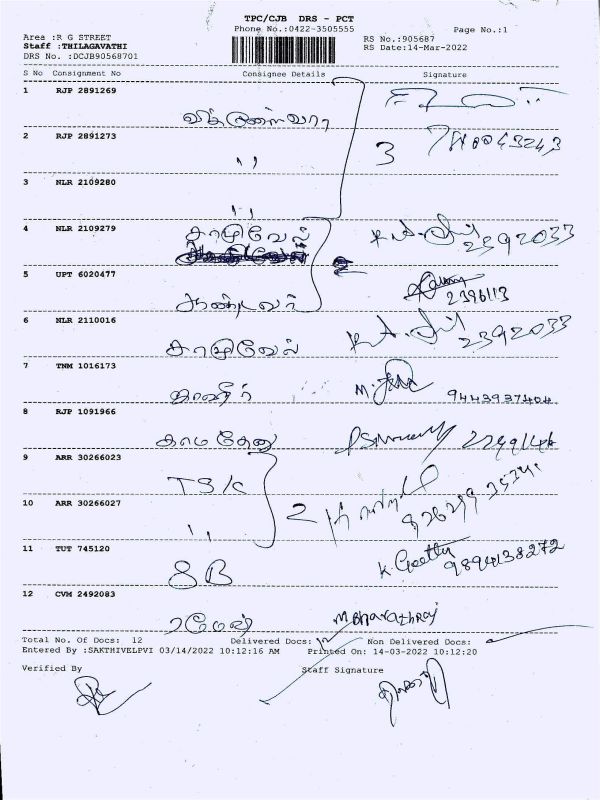 TPC/CJB DRS - PCT
Phone No.:0422-3505555 Page No.:1
Area :R G STREET RS No.:905687
Staff :THILAGAVATHI RS Date:14-Mar-2022
DRS No. :DCJB90568701
S No Consignment No Consignee Details Signature
1 RJP 2891269
2 RJP 2891273
,, 3
3 NLR 2109280
,,
4 NLR 2109279
சாமிவேல் 2392033
5 UPT 6020477
ஆண்டவர் 2396113
6 NLR 2110016
சாமிவேல் 2392033
7 TNM 1016173
காவேரி 9443937404
8 RJP 1091966
காமதேனு
9 ARR 30266023
10 ARR 30266027
,, 2
11 TUT 745120
SB K. Geetha 9894138272
12 CVM 2492083
ரமேஷ் M Bharathraj
Total No. Of Docs: 12 Delivered Docs: 12 Non Delivered Docs:
Entered By :SAKTHIVELPVI 03/14/2022 10:12:16 AM Printed On: 14-03-2022 10:12:20
Verified By Staff Signature